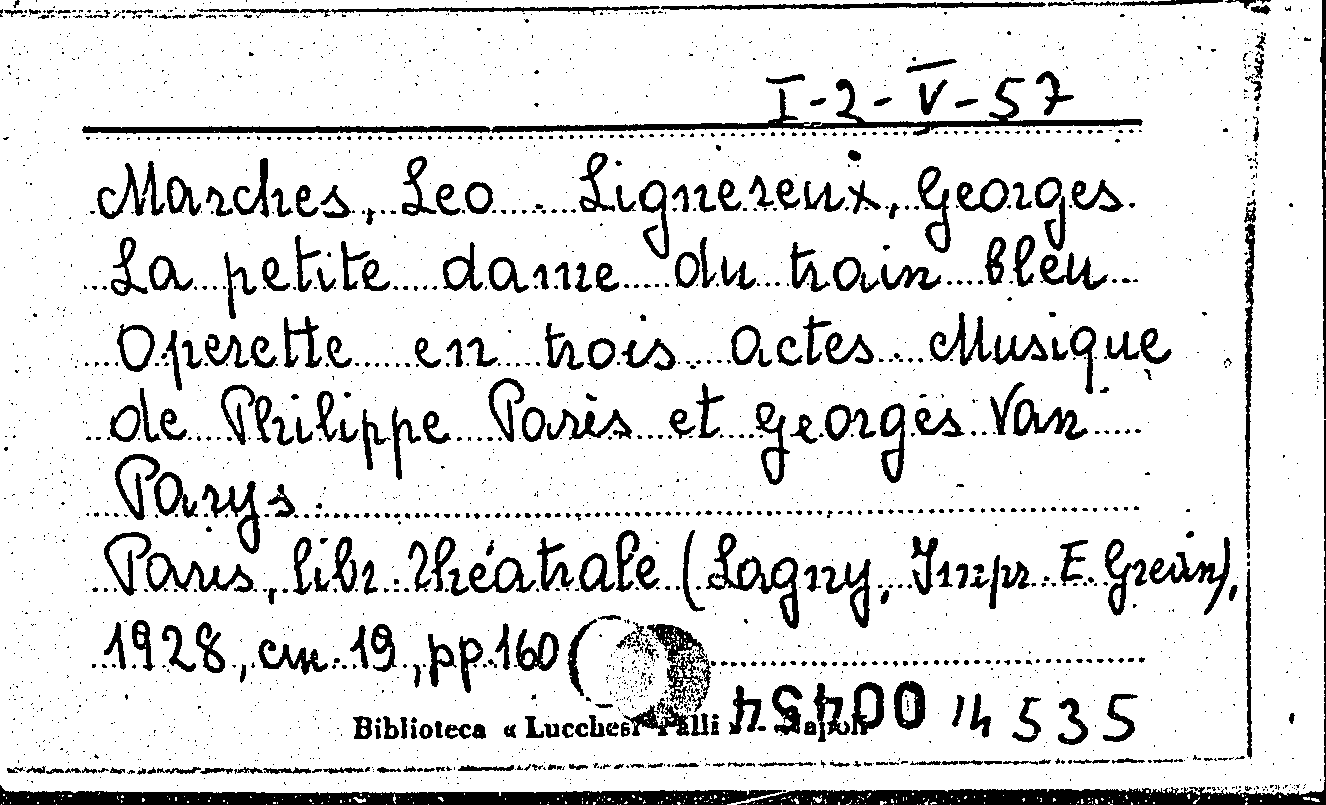 I-2-V-57
Marches, Leo. Lignereux, Georges.
La petite dame du train bleu
Operette en trois actes. Musique
de Philippe Parès et Georges Van
Parys.
Paris, libr. théatrale (Lagny, Impr. E. Grevin),
1928, cm. 19, pp. 160
Biblioteca « Lucchesi Palli » - Napoli
14535